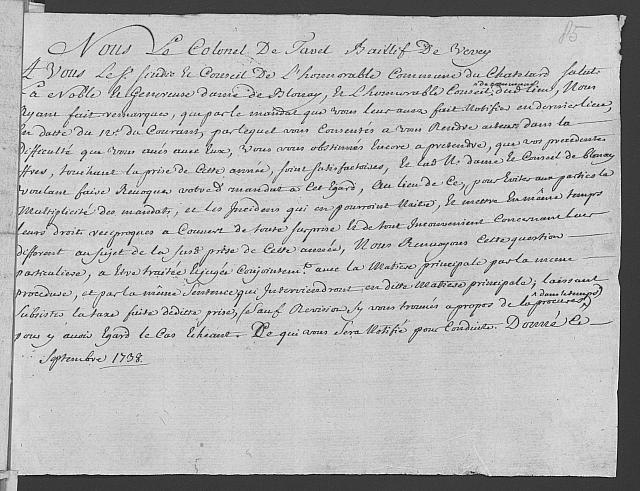 85
Nous Le Colonel De Tavel Baillif De Vevey
A Vous Le Sr. sindic & Conseil De L'honnorable Commune du Chatelard salut
La Noble & Genereuse dame de Blonay, & L'honnorable Conseil de commune dud. lieu, Nous
Ayant fait remarquer, que par le mandat que vous leur avéz fait Notifier en dernier lieu,
en datte du 12e. du Courant, par lequel vous Consentés a vous Rendre acteur dans la
difficulté que vous avés avec Eux, Vous vous obstinnés Encore a pretendre, que vos precedentes
offres, touchant la prise de Cette année, soint satisfactoires, Et lad. N. dame & Conseil de Blonay
voulant faire Revoquer votred. mandat a Cet Egard, Au lieu de Ce, pour Eviter aux parties la
Multiplicité des mandats, et les Incidens qui en pourroint Naitre, Et mettre En même temps
leurs droits reciproques a Couvert de toute surprise & de tout Inconvenient Concernant leur
different au sujet de la susd. prise de Cette année, Nous Renvoyons Cette question
particuliere, a Etre traitée & jugée Conjointemt. avec la Matiere principale par la meme
procedure, et par la même Sentence qui Interviendront en ditte Matiere principale; laissant
subsister la taxe faite dedicte prise, sauf Revision sy vous trouvés a propos de la procurer, dans le temps
pour y avoir Egard le Cas Echeant. Ce qui vous sera Notifié pour Conduite. Donné Ce
Septembre 1738.